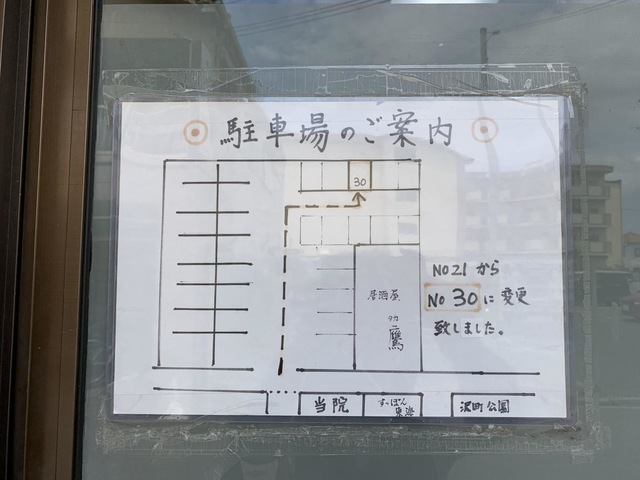 駐車場のご案内
30
NO21から
No 30に変更
致しました。
居酒屋
鷹
当院
すっぽん
東海
沢町公園